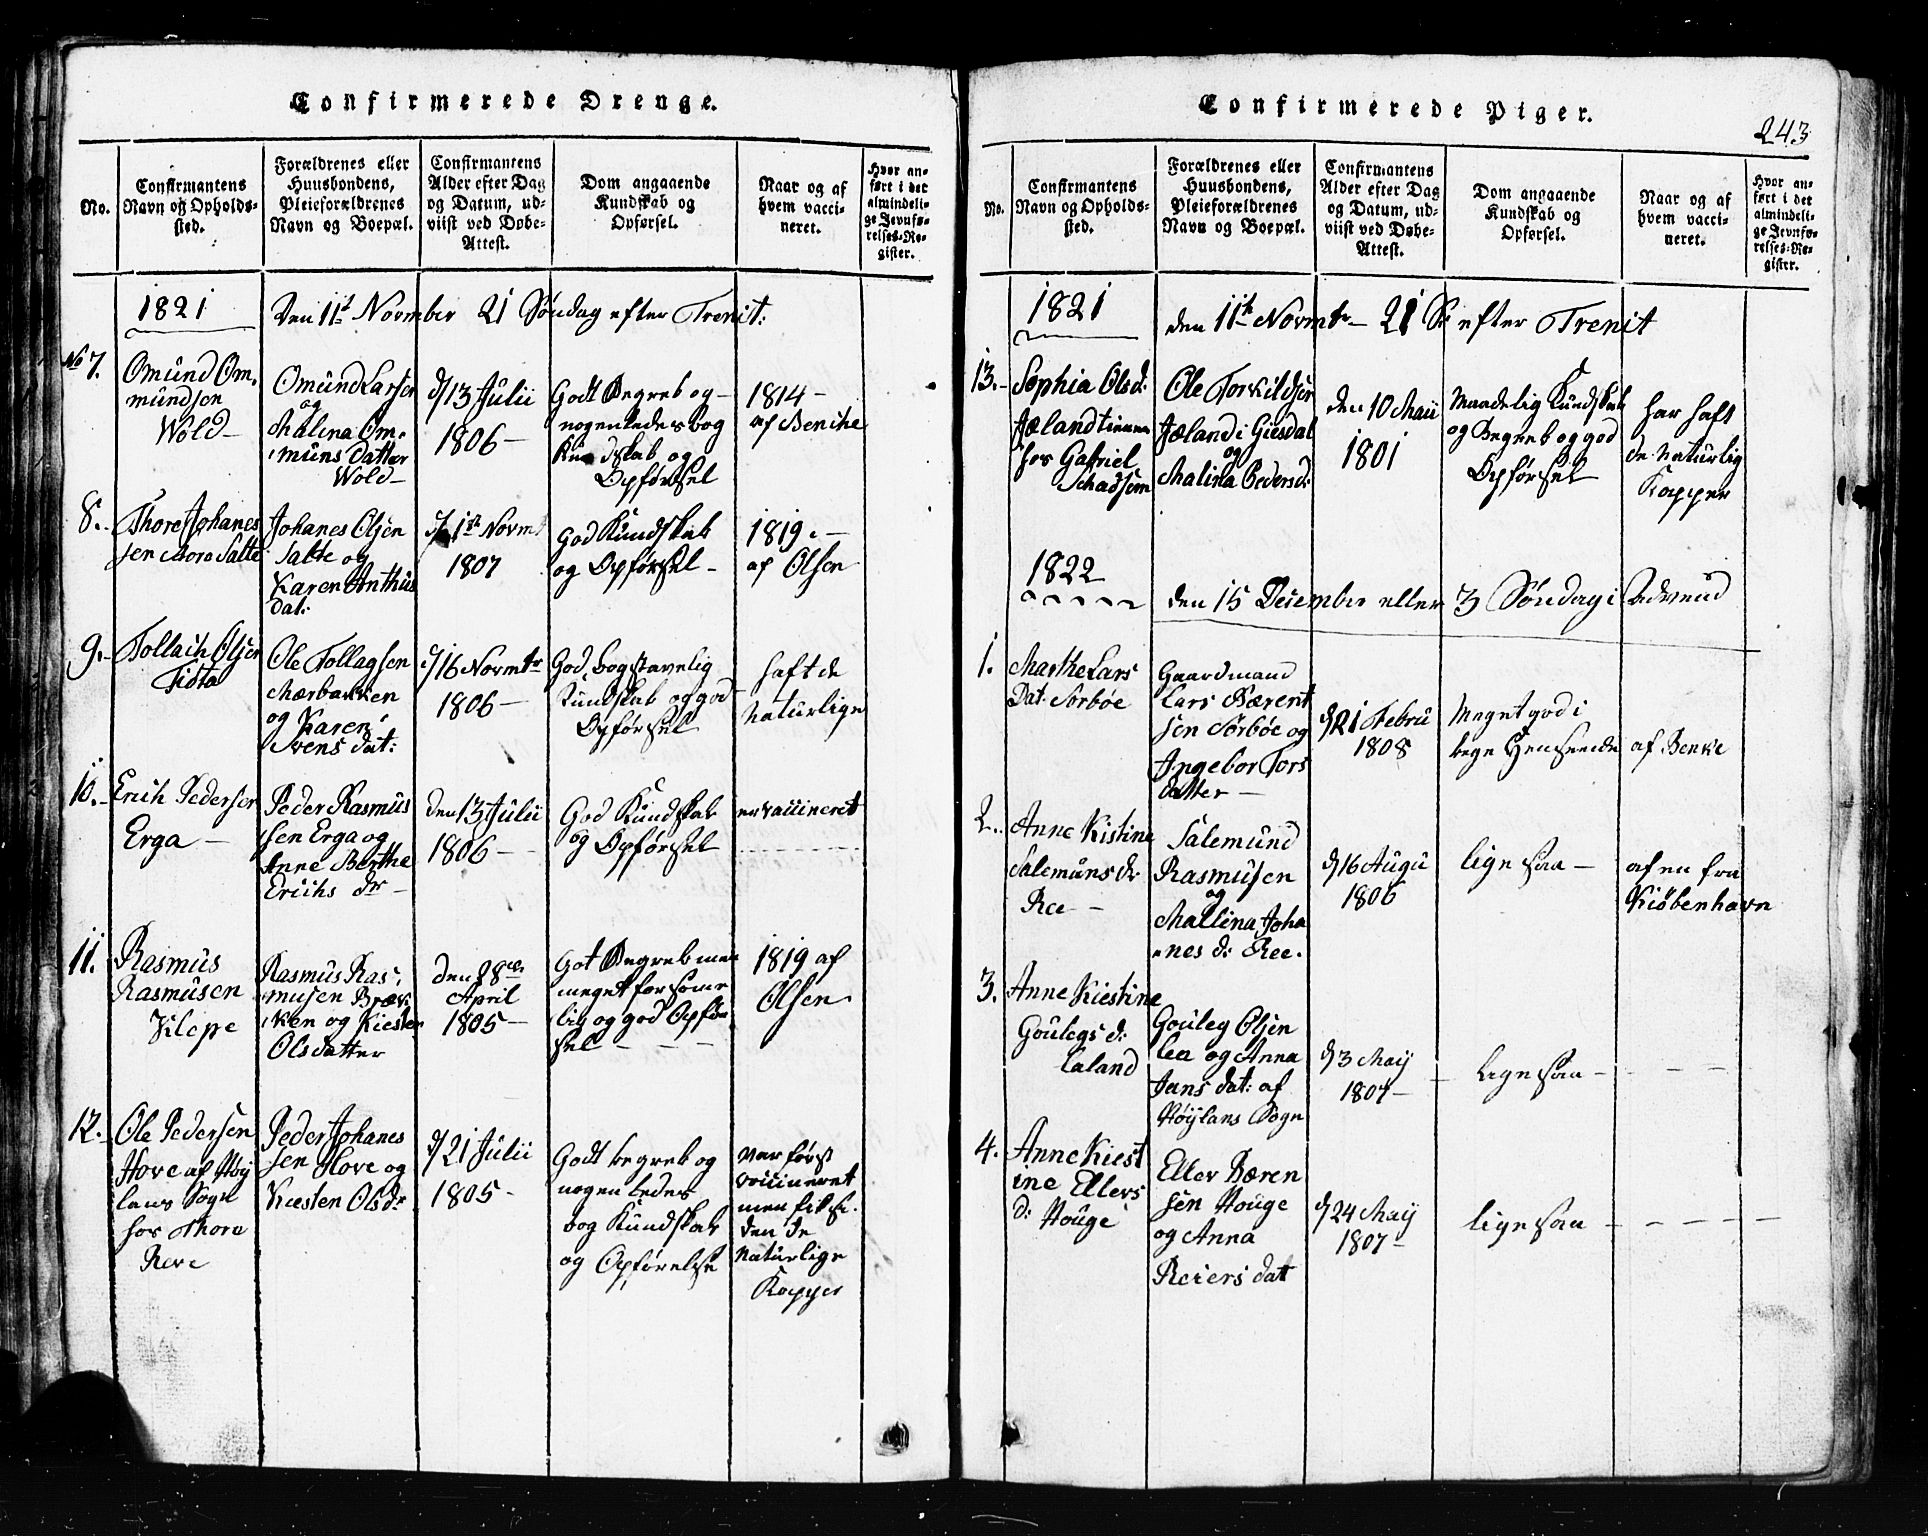 Confirmerede Drenge.
No.
Confirmantens
Navn og Opholds-
sted.
Forældrenes eller
Huusbondens,
Pleieforældrenes
Navn og Boepæl.
Confirmantens
Alder efter Dag
og Datum, ud-
viist ved Døbe-
Attest.
Dom angaaende
Kundskab og
Opførsel.
Naar og af
hvem vacci-
neret.
Hvor an-
ført i det
almindeli-
ge Jevnfø-
relses-Re-
gister.
1821
Den 11te Novmber 21 Söndag efter Trenit:
No 7.
Omünd Om,
mündsen
Wold
Omünd Larsen
og
Malena Om-
müns datter
Wold
d/13 Julii
1806
Godt Begreb og
nogenledes bog
Kundskab og
Opførsel
1814
af Benche
8.
Thore Johanes
sen Store Salte
Johanes Olsen
Salte og
Karen Anthüs
dat:
d/1te Novmt
1807
God Kundskab
og Opførsel
1819.
af Olsen
9.
Tollach Olsen
Tiøta
Ole Tollagsen
Mærbakken
og Karen
Svens dat:
d/16 Novmtr
1806
God, bogstavelig
Kundskab og god
Opførsel
haft de
Naturlige
10.
Erich Pedersen
Erga
Peder Rasmus
sen Erga og
Anne Berthe
Erichs dr
den 13 Julii
1806
God Kundskab
og Opførsel
er vaccineret
11.
Rasmus
Rasmusen
Klepe
Rasmus Ras,
musen Bræk
ken og Kiesten
Olsdatter
den 28de
April
1805
Got Begreb men
meget forsøme
lig og god Opfør
sel
1819 af
Olsen
12.
Ole Pedersen
Hove af Höy
lans Sogn
hos Thore
Reve
Peder Johanes
sen Hove og
Kiesten Olsdr
d/21 Julii
1805
Godt begreb og
nogenledes
bog Kundskab
og Opførelse
var først
vaccineret
men fik si
den de
Naturlige
Kopper
Confirmerede Piger.
243
No.
Confirmantens
Navn og Opholds-
sted.
Forældrenes eller
Huusbondens,
Pleieforældrenes
Navn og Boepæl.
Confirmantens
Alder efter Dag
og Datum, ud-
viist ved Døbe-
Attest.
Dom angaaende
Kundskab og
Opførsel.
Naar og af
hvem vacci-
neret.
Hvor an-
ført i det
almindeli-
ge Jevnfø-
relses-Re-
gister.
1821
den 11te Novmtr 21 S: efter Trenit
13.
Sophia Olsd:
Jæland tienen
hos Gabriel
Schadsem
Ole Torkildsen
Jæland i Giesdal
og
Malina Pedersd:
den 10 Maii
1801
Maadelig Kundskab
og Begreb og god
Opførsel
har haft
de Naturlig
Kopper
1822
den 15 Desember eller 3 Söndag i Advend
1.
Marthe Lars
Dat. Sorböe
Gaardmand
Lars Bærent
sen Sörböe og
Ingebor Tors
datter
d/21 Febru
1808
Meget god i
bege Henseende
af Benke
2.
Anne Kistine
Salemüns dr
Ree
Salemund
Rasmusen
og
Mallena Joha
nes d: Ree.
d/16 Augu
1806
lige saa
af en fra
Kiöbenhavn
3.
Anne Kiestine
Goulegs d:
Laland
Gouleg Olsen
Lea og Anna
Jans dat: af
Höÿlans Sogn
d/3 Maÿ
1807
Lige saa
4.
Anne Kiest
ine Ellers
d: Houge
Eller Bæren
sen Houge
og Anna
Reiers dat
d/24 Maÿ
1807
lige saa